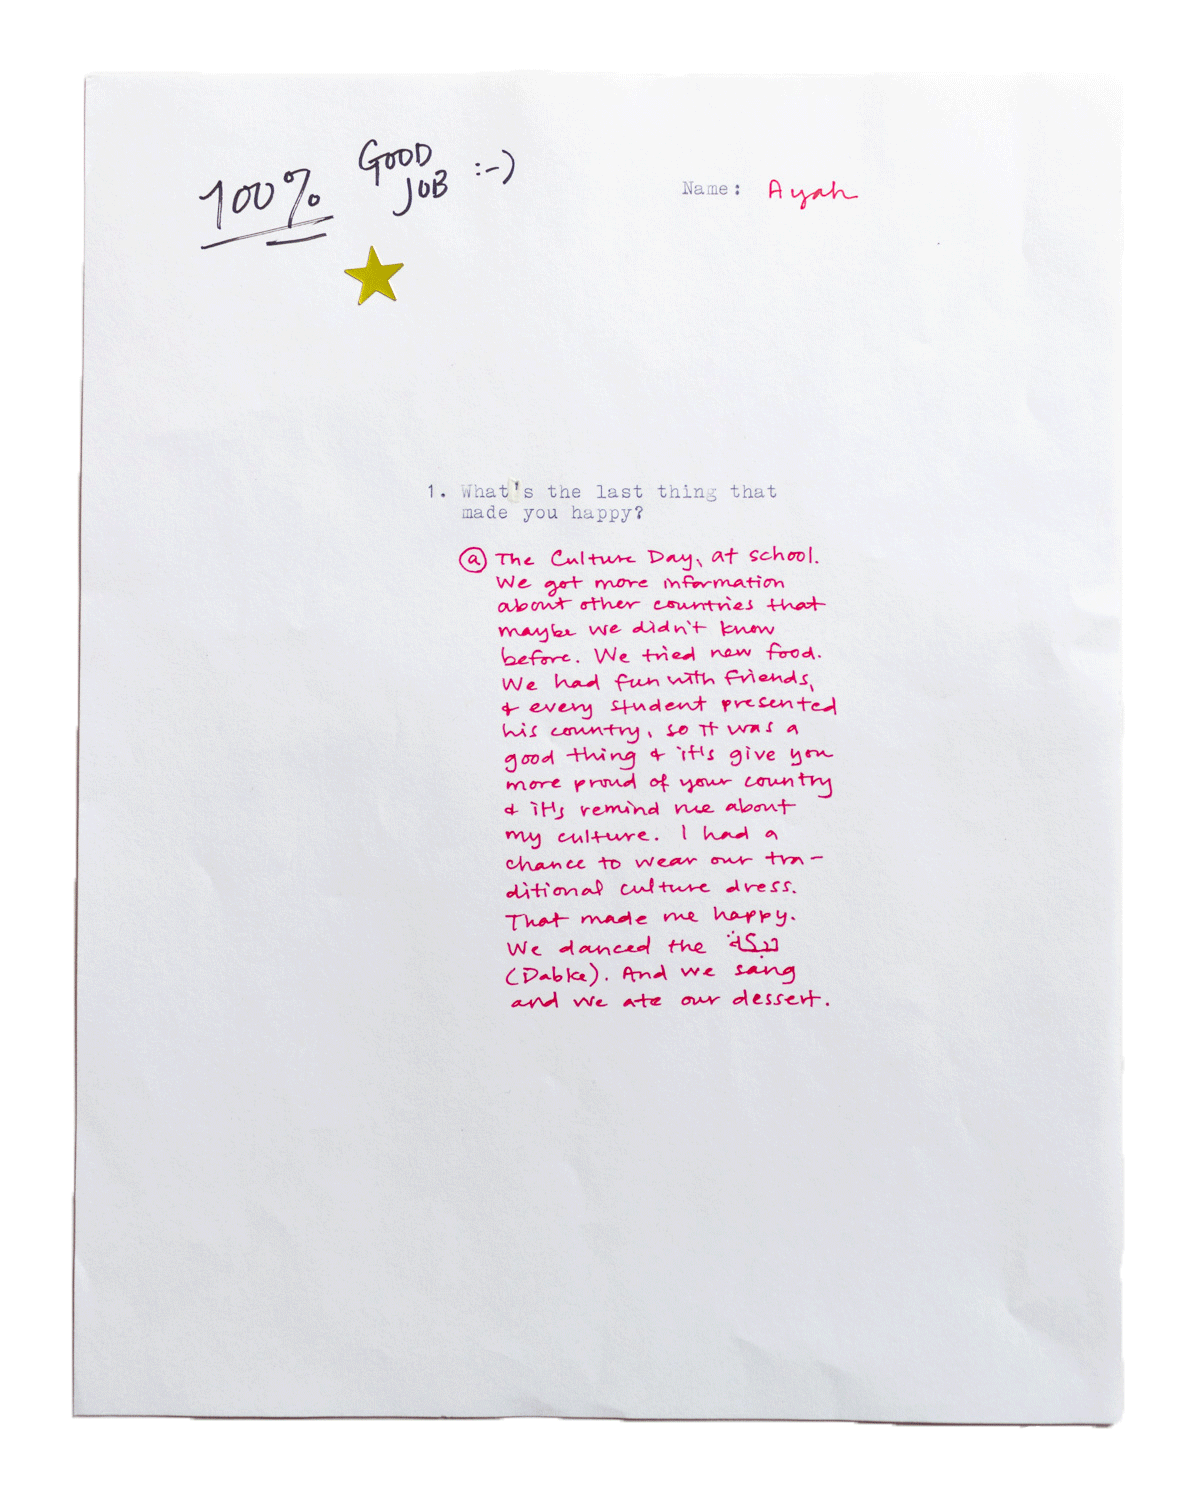 100% GOOD JOB :-)
Name: Ayah
1. What's the last thing that
made you happy?
ⓐ The Culture Day, at school.
We got more information
about other countries that
maybe we didn't know
before. We tried new food.
We had fun with friends,
& every student presented
his country, so it was a
good thing & it's give you
more proud of your country
& it's remind me about
my culture. I had a
chance to wear our tra-
ditional culture dress.
That made me happy.
We danced the دبكة
(Dabke). And we sang
and we ate our dessert.